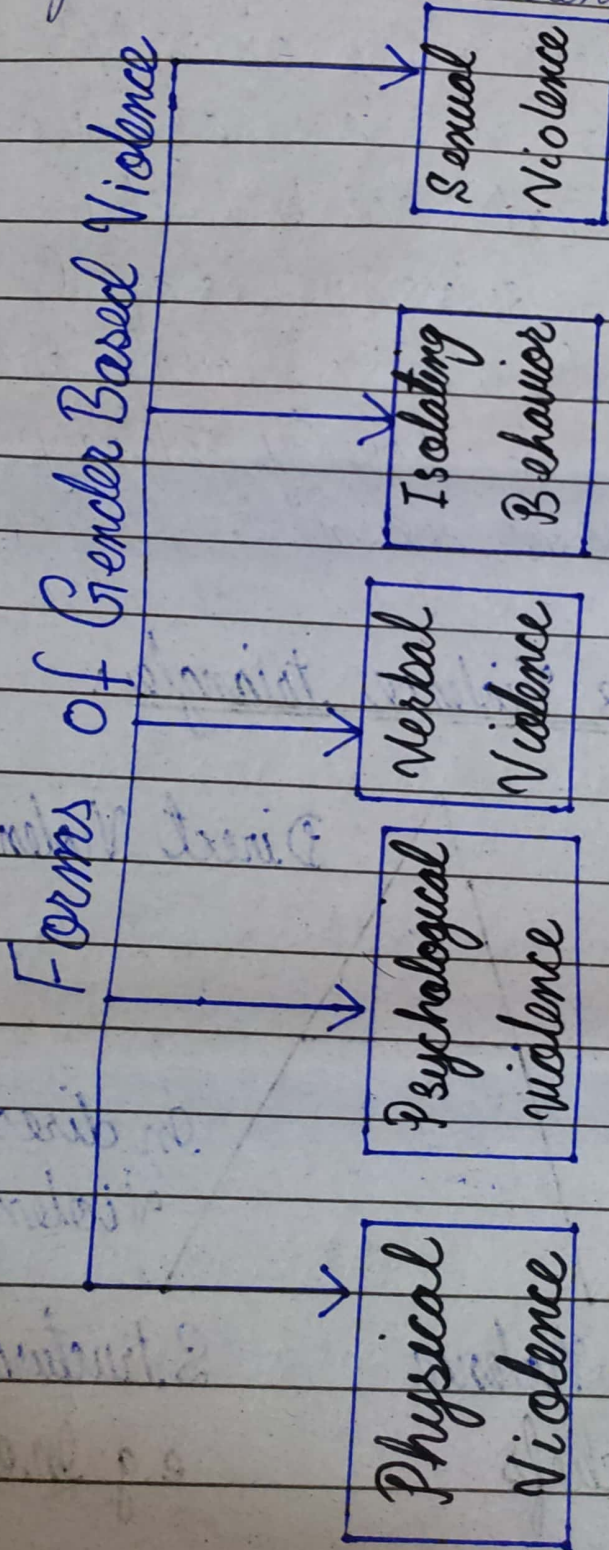 Forms of Gender Based Violence
Physical
Violence
Psychological
violence
Verbal
Violence
Isolating
Behavior
Sexual
Violence